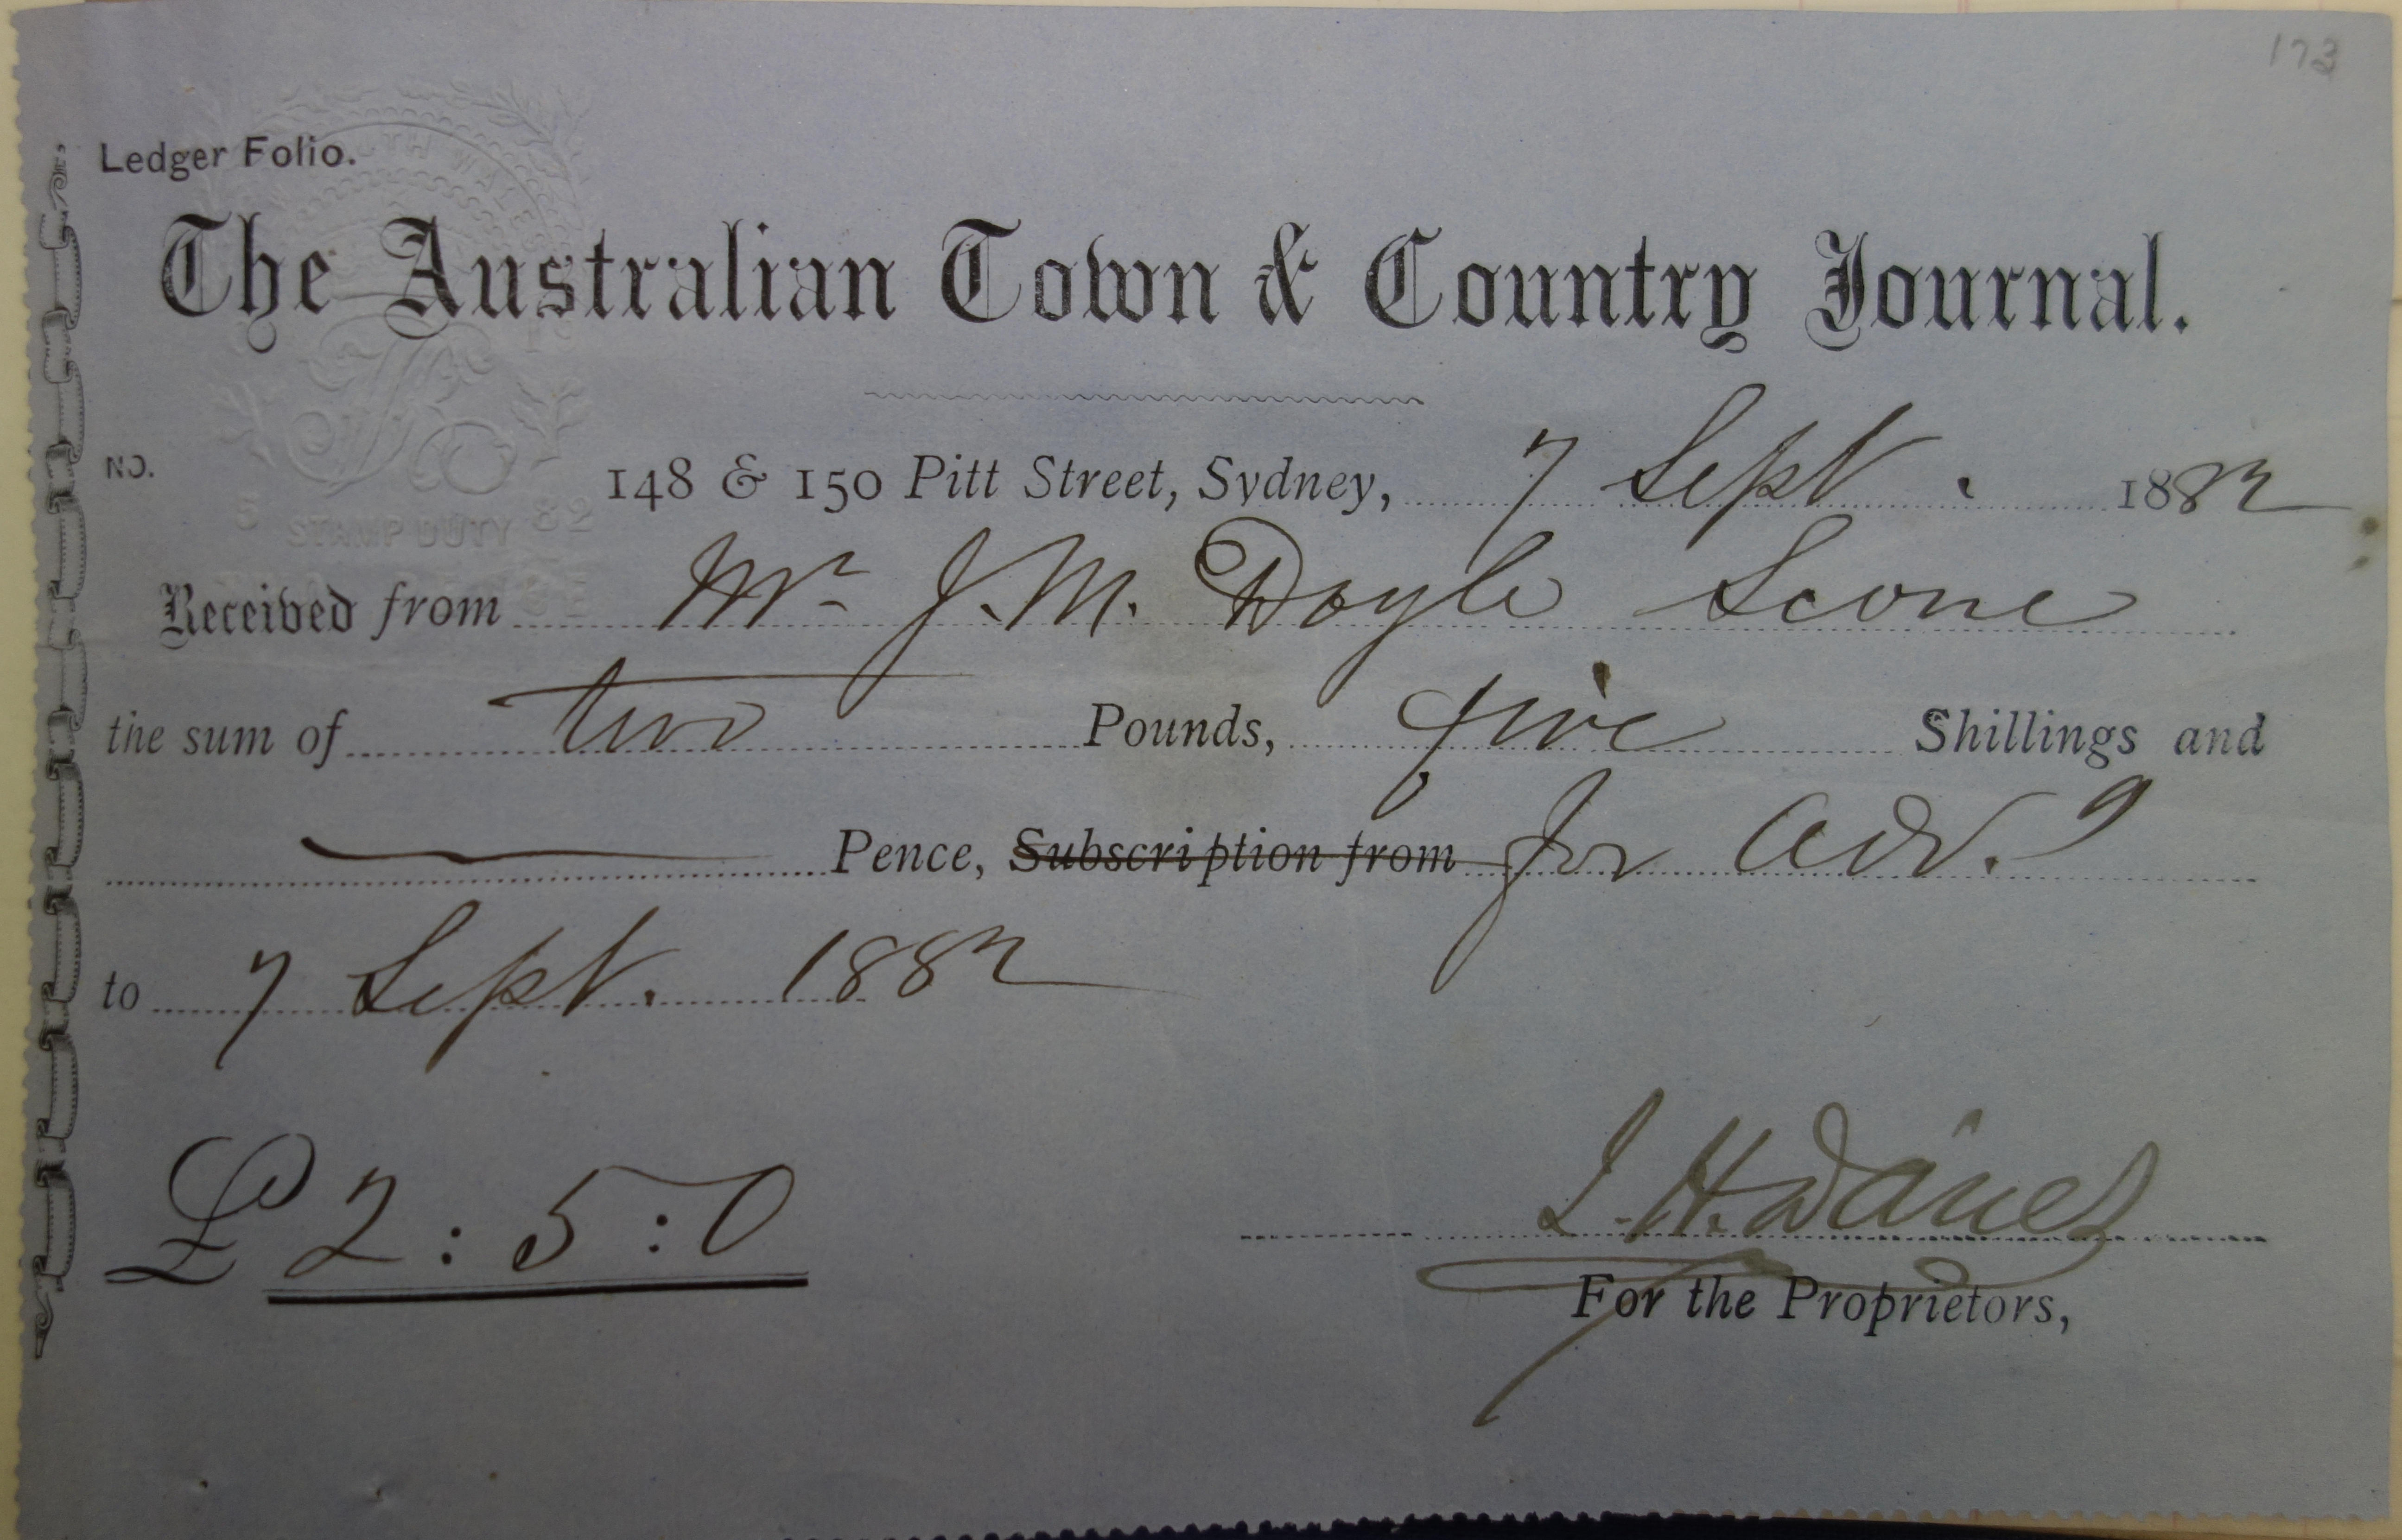 173
Ledger Folio.
The Australian Town & Country Journal.
NO.
148 & 150 Pitt Street, Sydney, 7 Sept. 1882
STAMP DUTY
Received from Mr J. M. Doyle Scone
the sum of two Pounds, five Shillings and
Pence, Subscription from for Adv.g
to 7 Sept. 1882
£ 2 : 5 : 0
J. H. Davies
For the Proprietors,